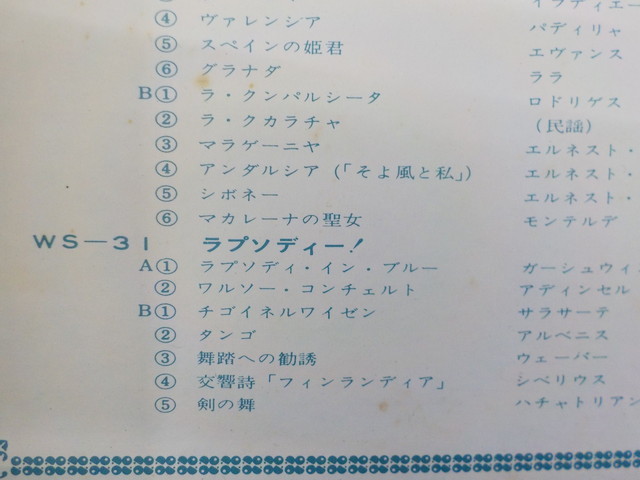 ④ ヴァレンシア パディリャ
⑤ スペインの姫君 エヴァンス
⑥ グラナダ ララ
B① ラ・クンパルシータ ロドリゲス
② ラ・クカラチャ (民謡)
③ マラゲーニヤ エルネスト・
④ アンダルシア (「そよ風と私」) エルネスト・
⑤ シボネー エルネスト・
⑥ マカレーナの聖女 モンテルデ
WS—31 ラプソディー!
A① ラプソディ・イン・ブルー ガーシュウィ
② ワルソー・コンチェルト アディンセル
B① チゴイネルワイゼン サラサーテ
② タンゴ アルベニス
③ 舞踏への勧誘 ウェーバー
④ 交響詩「フィンランディア」 シベリウス
⑤ 剣の舞 ハチャトリアン